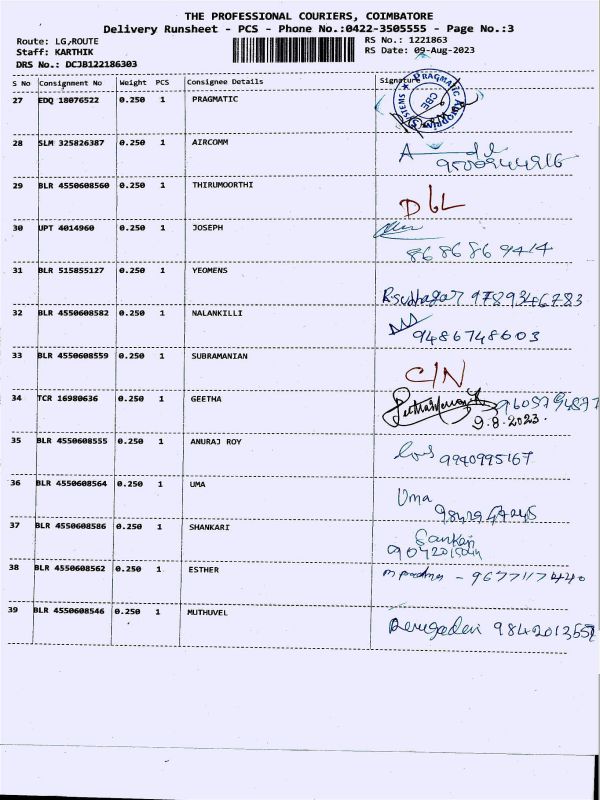 THE PROFESSIONAL COURIERS, COIMBATORE
Delivery Runsheet - PCS - Phone No.:0422-3505555 - Page No.:3
Route: LG,ROUTE
Staff: KARTHIK
DRS No.: DCJB122186303
RS No.: 1221863
RS Date: 09-Aug-2023
S No Consignment No Weight PCS Consignee Details Signature
27 EDQ 18076522 0.250 1 PRAGMATIC
PRAGMATIC SYSTEMS CBE
28 SLM 325826387 0.250 1 AIRCOMM
29 BLR 4550608560 0.250 1 THIRUMOORTHI DGL
30 UPT 4014960 0.250 1 JOSEPH 8686869414
31 BLR 515855127 0.250 1 YEOMENS R.sudhagar 9789346783
32 BLR 4550608582 0.250 1 NALANKILLI 9486748603
33 BLR 4550608559 0.250 1 SUBRAMANIAN C/N
34 TCR 16980636 0.250 1 GEETHA
9.8.2023
35 BLR 4550608555 0.250 1 ANURAJ ROY 9940995167
36 BLR 4550608564 0.250 1 UMA Uma
37 BLR 4550608586 0.250 1 SHANKARI Sankari
38 BLR 4550608562 0.250 1 ESTHER 9677117440
39 BLR 4550608546 0.250 1 MUTHUVEL Renugadevi